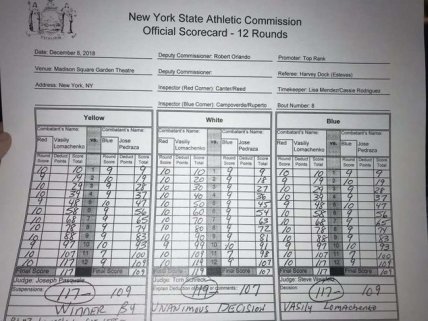 New York State Athletic Commission
Official Scorecard - 12 Rounds
Date: December 8, 2018 Deputy Commissioner: Robert Orlando Promoter: Top Rank
Venue: Madison Square Garden Theatre Deputy Commissioner: Referee: Harvey Dock (Esteves)
Address: New York, NY Inspector (Red Corner): Canter/Reed Timekeeper: Lise Mendez/Cassie Rodriguez
Inspector (Blue Corner): Campoverde/Ruperto Bout Number: 8
Yellow White Blue
Combatant's Name: Combatant's Name: Combatant's Name: Combatant's Name: Combatant's Name: Combatant's Name:
Red Vasiliy Lomachenko vs. Blue Jose Pedraza Red Vasiliy Lomachenko vs. Blue Jose Pedraza Red Vasiliy Lomachenko vs. Blue Jose Pedraza
Round Score Deduct Points Score Total Round Score Deduct Points Score Total Round Score Deduct Points Score Total Round Score Deduct Points Score Total Round Score Deduct Points Score Total Round Score Deduct Points Score Total
10 10 1 9 9 10 10 1 9 9 10 10 1 9 9
9 19 2 10 19 10 20 2 9 18 9 19 2 10 19
10 29 3 9 28 10 30 3 9 27 10 29 3 9 28
10 39 4 9 37 10 40 4 9 36 10 39 4 9 37
9 48 5 10 47 10 50 5 9 45 9 48 5 10 47
10 58 6 9 56 10 60 6 9 54 10 58 6 9 56
10 68 7 9 65 10 70 7 9 63 10 68 7 9 65
10 78 8 9 74 10 80 8 9 72 10 78 8 9 74
10 88 9 9 83 10 90 9 9 10 88 9 9 83
9 97 10 10 93 9 99 10 10 91 9 97 10 10 93
10 107 11 7 100 10 109 11 7 98 10 107 11 7 100
10 117 12 9 109 10 119 12 9 107 10 117 12 9 109
Final Score 117 Final Score 109 Final Score 119 Final Score 107 Final Score 117 Final Score 109
Judge: Joseph Pasquale Judge: Tom Schreck Judge: Steve Weisfeld
Suspensions: 117 - 109 Explain Deduction of Points or comments: 119 - 107 Decision: 117 - 109
WINNER BY UNANIMOUS DECISION VASILIY LOMACHENKO